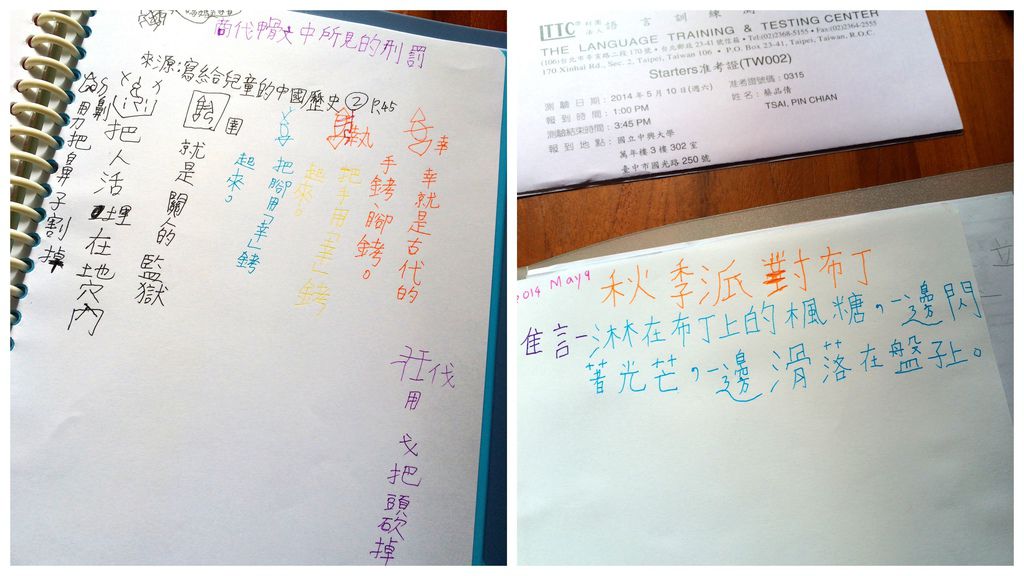 商代骨文中所見的刑罰
來源:寫給兒童的中國歷史②P.45
幸
幸就是古代的
手銬、腳銬。
執
把手用「幸」銬
起來。
把腳用「幸」銬
起來。
圉
就是關的監獄
把人活埋在地穴內
劓
用刀把鼻子割掉
伐
用戈把頭砍掉
LTTC
語言訓練
THE LANGUAGE TRAINING & TESTING CENTER
(106)台北市辛亥路二段170號•台北郵政23-41號信箱•Tel:(02)2368-5155•Fax:(02)2364-2555
170 Xinhai Rd., Sec. 2, Taipei, Taiwan 106 • P.O. Box 23-41, Taipei, Taiwan, R.O.C.
Starters准考證(TW002)
測驗日期:2014年5月10日(週六)
准考證號碼:0315
報到時間:1:00 PM
姓名:蔡品倩
測驗結束時間:3:45 PM
TSAI, PIN CHIAN
報到地點:國立中興大學
萬年樓3樓302室
臺中市國光路250號
2014 May 9
秋季派對布丁
淋在布丁上的楓糖,一邊閃
著光芒,一邊滑落在盤子上。